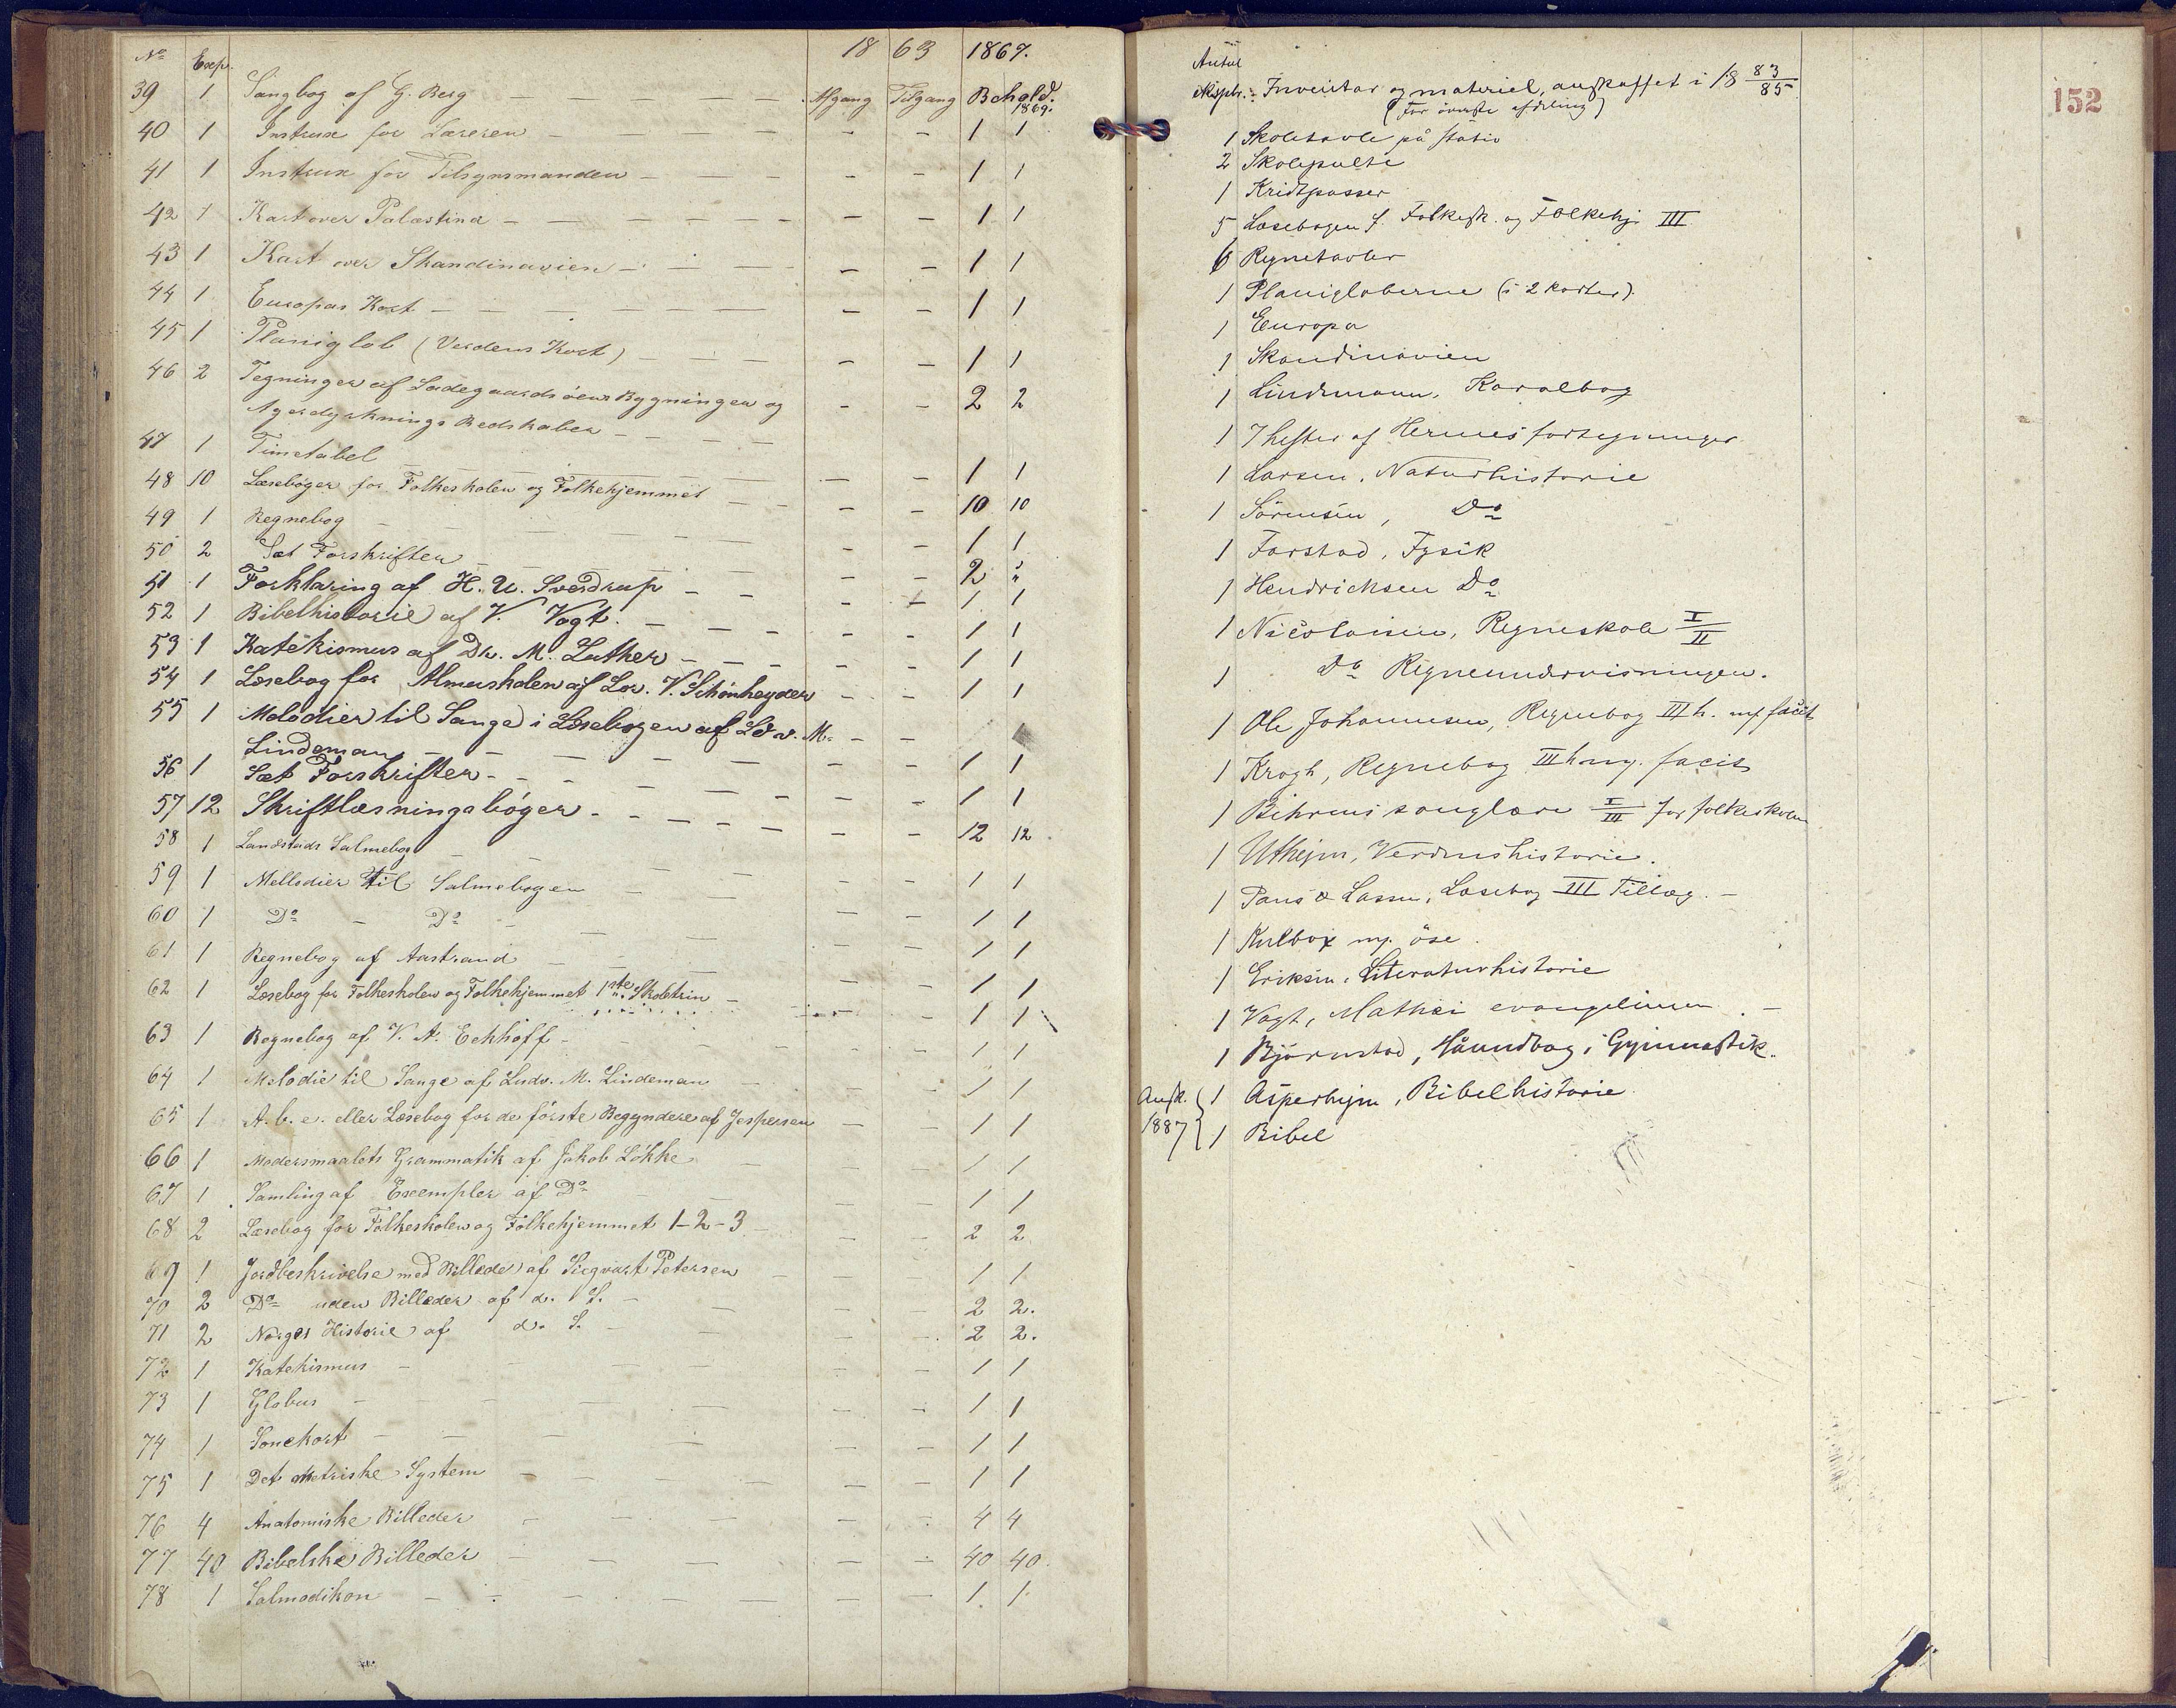 No Exp. 18 63 1867.
39 1 Sangbog af G. Berg — — — Afgang Tilgang Behold. 1869.
40 1 Instrux for Læreren — — — — — 1 1
41 1 Instrux for Tilsynsmanden — — — — — 1 1
42 1 Kart over Palæstina — — — — — — 1 1
43 1 Kart over Skandinavien — — — — — 1 1
44 1 Europas Kart — — — — — — — 1 1
45 1 Planiglob (Verdens Kart) — — — — — 1 1
46 2 Tegninger af Ladegaardsöens Bygninger og — — 2 2
Agerdyrknings Redskaber — — — —
47 1 Timetabel — — — — — 1 1
48 10 Læsebøger for Folkeskolen og Folkehjemmet — — — — 10 10
49 1 Regnebog — — — — — 1 1
50 2 Sæt Forskrifter — — — — 2 "
51 1 Forklaring af H. U. Sverdrup — — — — 1 1
52 1 Bibelhistorie af V. Vogt. — — — — — 1 1
53 1 Katekismus af Dr. M. Luther — — — — — 1 1
54 1 Læsebog for Almuskolen af Lor. V. Schönheyder — — 1 1
55 1 Melodier til Sange i Læsebogen af Ldv. M. — —
Lindeman — — — — — — 1 1
56 1 Sæt Forskrifter — — — — — 1 1
57 12 Skriftlæsningsbøger — — — — — — 12 12
58 1 Landstads Salmebog — — — — — 1 1
59 1 Mellodier til Salmebogen — — — — 1 1
60 1 Do — Do — — — — 1 1
61 1 Regnebog af Aastrand — — — — 1 1
62 1 Læsebog for Folkeskolen og Folkehjemmet 1ste Skoletrin — — — 1 1
63 1 Regnebog af V. A. Eckhoff — — — — 1 1
64 1 Melodie til Sange af Ludv. M. Lindeman — — — 1 1
65 1 A. b. c. eller Læsebog for de første Begyndere af Jespersen — — 1 1
66 1 Modersmaalets Grammatik af Jakob Løkke — — — 1 1
67 1 Samling af Exempler af Do — — — — 1 1
68 2 Læsebog for Folkeskolen og Folkehjemmet 1-2-3 — — — 2 2
69 1 Jordbeskrivelse med Billeder af Siegvart Petersen — — — 1 1
70 2 Do uden Billeder af d. S. — — — — 2 2.
71 2 Norges Historie af d. S. — — — — 2 2.
72 1 Katekismus — — — — — 1 1
73 1 Globus — — — — — 1 1
74 1 Sonekart — — — — — — 1 1
75 1 Det metriske System — — — — — 1 1
76 4 Anatomiske Billeder — — — — — 4 4
77 40 Bibelske Billeder — — — — — 40 40.
78 1 Salmodikon — — — — — — 1 1
152
Antal
eksplr. Inventar og materiel, anskaffet i 18 83/85
(For øverste afdeling)
1 Skoletavle på stativ
2 Skolepulte
1 Kridtpasser
5 Læsebogen f. Folkesk. og Folkehj. III
6 Regnetavler
1 Planigloberne (i 2 karter).
1 Europa
1 Skandinavien
1 Lindemann, Koralbog
1 7 hefter af Hermes fortegninger
1 Larsen, Naturhistorie
1 Sörensen, Do
1 Farstad, Fysik
1 Hendrichsen Do
1 Nicolaisen, Regneskole I/II
1 Do Regneundervisningen.
1 Ole Johannesen, Regnebog III h. m. facit
1 Krogh, Regnebog III h m. facit
1 Behrens sanglære I/III for folkeskolen
1 Uthejm, Verdenshistorie.
1 Paus & Lassen, Læsebog III Tillæg. —
1 Kulbox m. öse.
1 Eriksen, Literaturhistorie
1 Vogt, Mathæi evangelium. —
1 Bjørnstad, Håundbog i Gymnastik.
Ansk. 1 Asperheim, Bibelhistorie
1887 1 Bibel